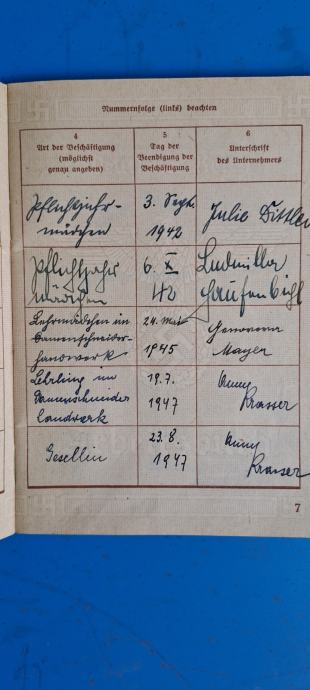 Nummernfolge (links) beachten
4
Art der Beschäftigung
(möglichst
genau angeben)
5
Tag der
Beendigung der
Beschäftigung
6
Unterschrift
des Unternehmers
Pflichtjahr-
mädchen
3. Sept.
1942
Julie Dittler
Pflichtjahr
mädchen
6. X
42
Ludmilla
Lehrmädchen im
Damenschneider-
handwerk
24. Mai
1945
Genovena
Mayer
Lehrling im
Damenschneider
handwerk
19.7.
1947
Anny
Krasser
Gesellin
23.8.
1947
Anny
Krasser
7